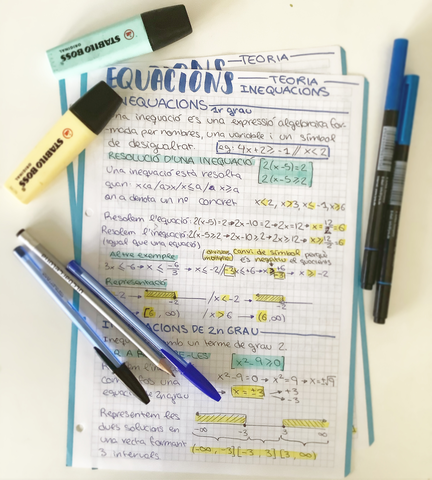 STABILO BOSS
ORIGINAL
STABILO BOSS
ORIGINAL
TEORIA
EQUACIONS TEORIA
INEQUACIONS
INEQUACIONS 1r grau
Una inequació és una expressió algebraica for-
mada per nombres, una variable i un símbol
de desigualtat. eg: 4x+2≥-1 // x<2
RESOLUCIÓ D'UNA INEQUACIÓ 2(x-5)=2
Una inequació està resolta 2(x-5≥2
quan: x<a/a>x/x≤a/ x≥a
on a denota un nº concret x<2, x>3, x≤-1, x≥6
Resolem l'equació: 2(x-5)=2→2x-10=2→2x=12→x=12/2=6
Resolem l'inequació: 2(x-5≥2→2x-10≥2→2x≥12→x≥12/2=6
(igual que una equació)
Altre exemple: canvi de símbol perquè
és negatiu el
3x≤-6→x≤-6/3→x≤-2//-3x≤+6→x≥+6/-3→x≥-2
Representació
-2 /x<-2
[6, ∞) /x>6 (6,∞)
INEQUACIONS DE 2n GRAU
Inequació amb un terme de grau 2
x²-9≥0
x²-9=0→x²=9→x=±√9
com una x=±3 +3
-3
Representem les
dues solucions en -∞ -3 3 ∞
una recta formant
3 intervals (-∞,-3][-3,3][3,∞)